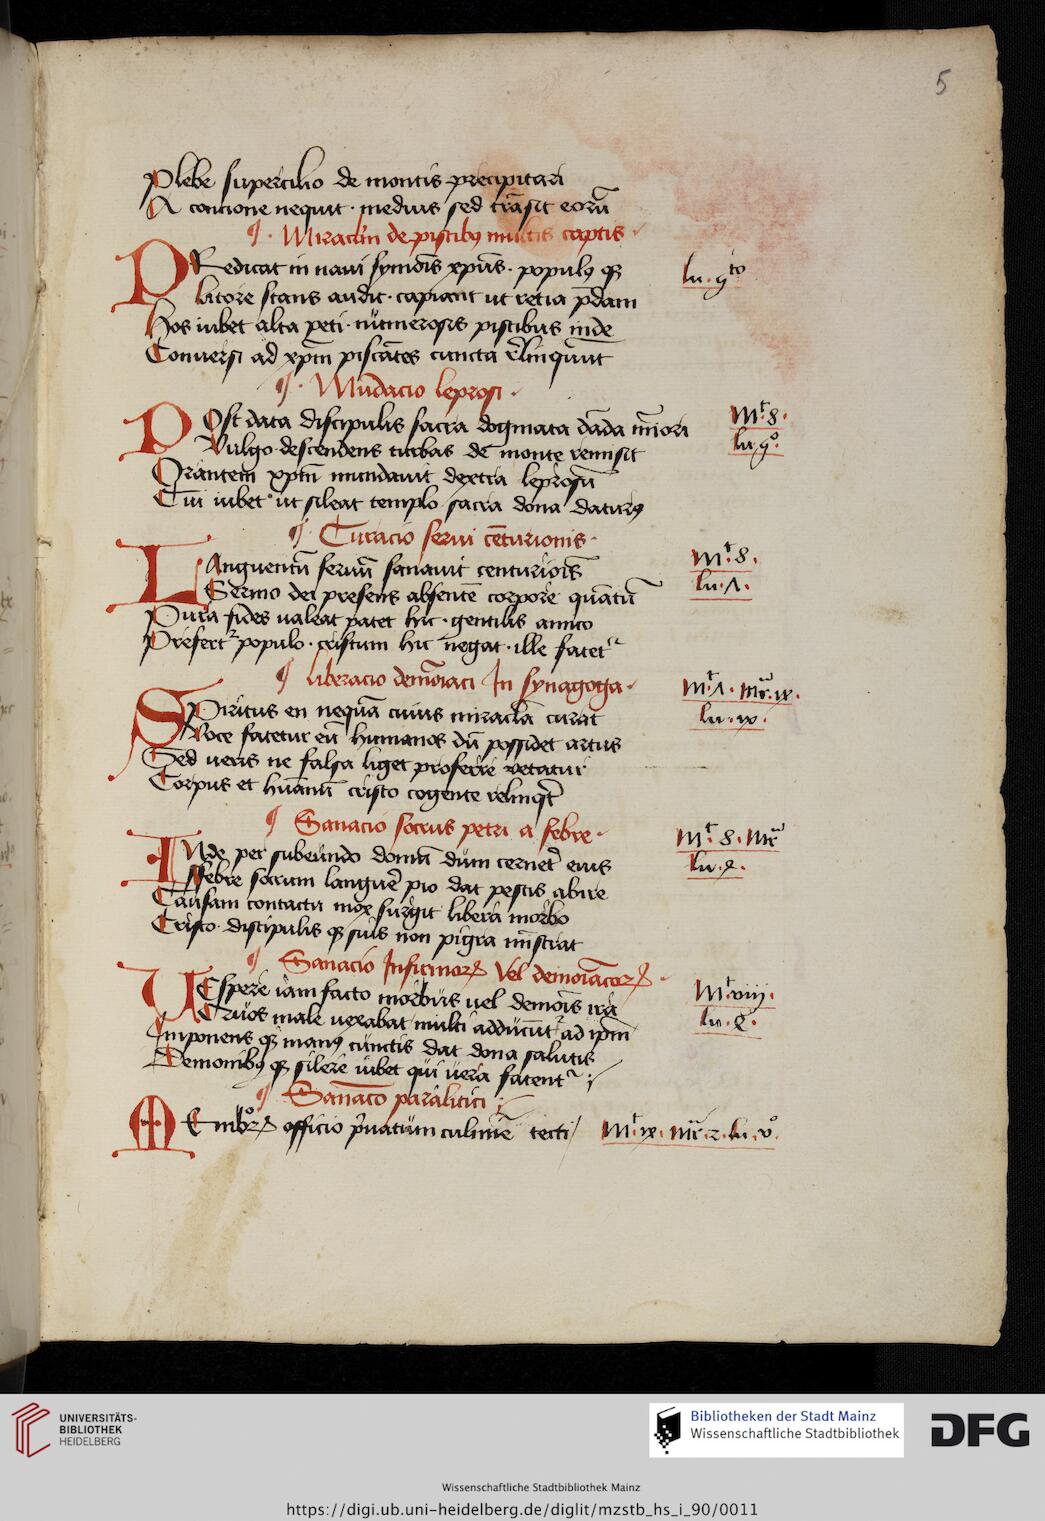 5
Plebe supercilio de montis precipitari
A concione nequit · medius sed trāsit eorū
¶ · Miraclm̄ de piscibꝰ multis captis ·
PRedicat in naui symōis xpūs · populꝰ qꝫ
lu · 5to
Litore stans audit · capiant ut retia p̄dam
Hos iubet alta peti · numerosis piscibus inde
Conuersi ad xpm̄ piscātes cuncta r̄linquūt
¶ · Mūdacio leprosi ·
POst data discipulis sacra dogmata dāda mīori
Mt 8 ·
Vulgo descendens turbas de monte remisit
lu 5o
Orantem xpm̄ mundauit dextra leprosū
Cui iubet ut sileat templo sacra dona daturꝰ
¶ · Curacio serui cēturionis ·
LAnguentū seruū sanauit centuriōis
Mt · 8 ·
Sermo dei presens absentē corpore quātū
lu · 7 ·
Pura fides ualeat patet hic · gentilis amico
Prefertr populo · cristum hic negat · ille fatetr
¶ liberacio demōiaci In synagoga ·
SPiritus en nequā cuius miraclā curat
Voce fatetur eū humanos dū possidet artus
lu · iv ·
Sed ueris ne falsa liget proferre vetatur
Corpus et humānū cristo cogente relinqt̄
¶ Sanacio socrus petri a febre ·
INde per subeundo domū dum cernet eius
Mt · 8 · Mr
ffebre socrum languēr pio dat pestis abire
lu · 4 ·
Causam contactu mox surgit libera morbo
Cristo discipulis qꝫ suis non pigra mīstrat
¶ Sanacio Infirmorꝝ Vel demoīacorꝝ ·
VEspere iam facto morbus uel demōis ira
Mt viii ·
Quos male uexabat multi adducūtr ad ipm̄
lu · 4 ·
Imponens qꝫ manꝰ cunctis dat dona salutis
Demonibꝰ qꝫ silere iubet qui uera fatentr
¶ Sanaco paralitici
MEmbrorꝝ officio p̄uatum culmine tecti
Mt · ix · Mr · 2 · lu · vo
UNIVERSITÄTS-
BIBLIOTHEK
HEIDELBERG
Bibliotheken der Stadt Mainz
Wissenschaftliche Stadtbibliothek
DFG
Wissenschaftliche Stadtbibliothek Mainz
https://digi.ub.uni-heidelberg.de/diglit/mzstb_hs_i_90/0011